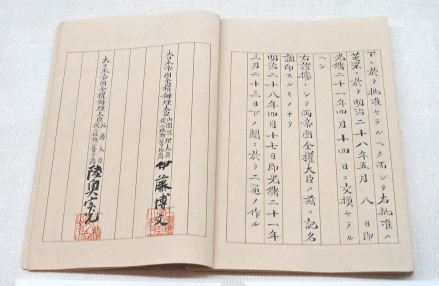 下ニ於テ批准セラルヘク而シテ右批准ハ
芝罘ニ於テ明治二十八年五月八日即
光緒二十一年四月十四日ニ交換セラル
ヘシ
右證據トシテ両帝國全權大臣ハ茲ニ記名
調印スルモノナリ
明治二十八年四月十七日即光緒二十一年
三月二十三日下ノ關ニ於テ二通ヲ作ル
大日本帝國全權辨理大臣内閣總理大臣
伊藤博文
大日本帝國全權辨理大臣外務大臣
陸奥宗光